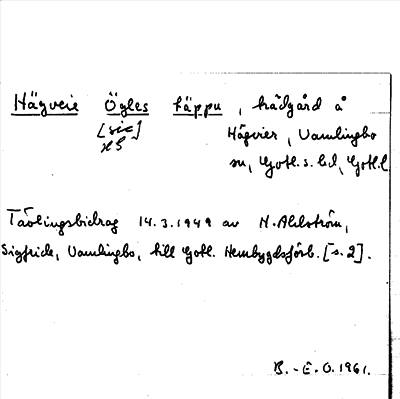 Hägveie Ögles täppu, trädgård å
[sic]
Hägvier, Vamlingbo
sn, Gotl.s. hd, Gotl.l
Tävlingsbidrag 14.3.1949 av N. Ahlström,
Sigfride, Vamlingbo, till Gotl. Hembygdsförb. [s. 2].
B.-E.O. 1961.